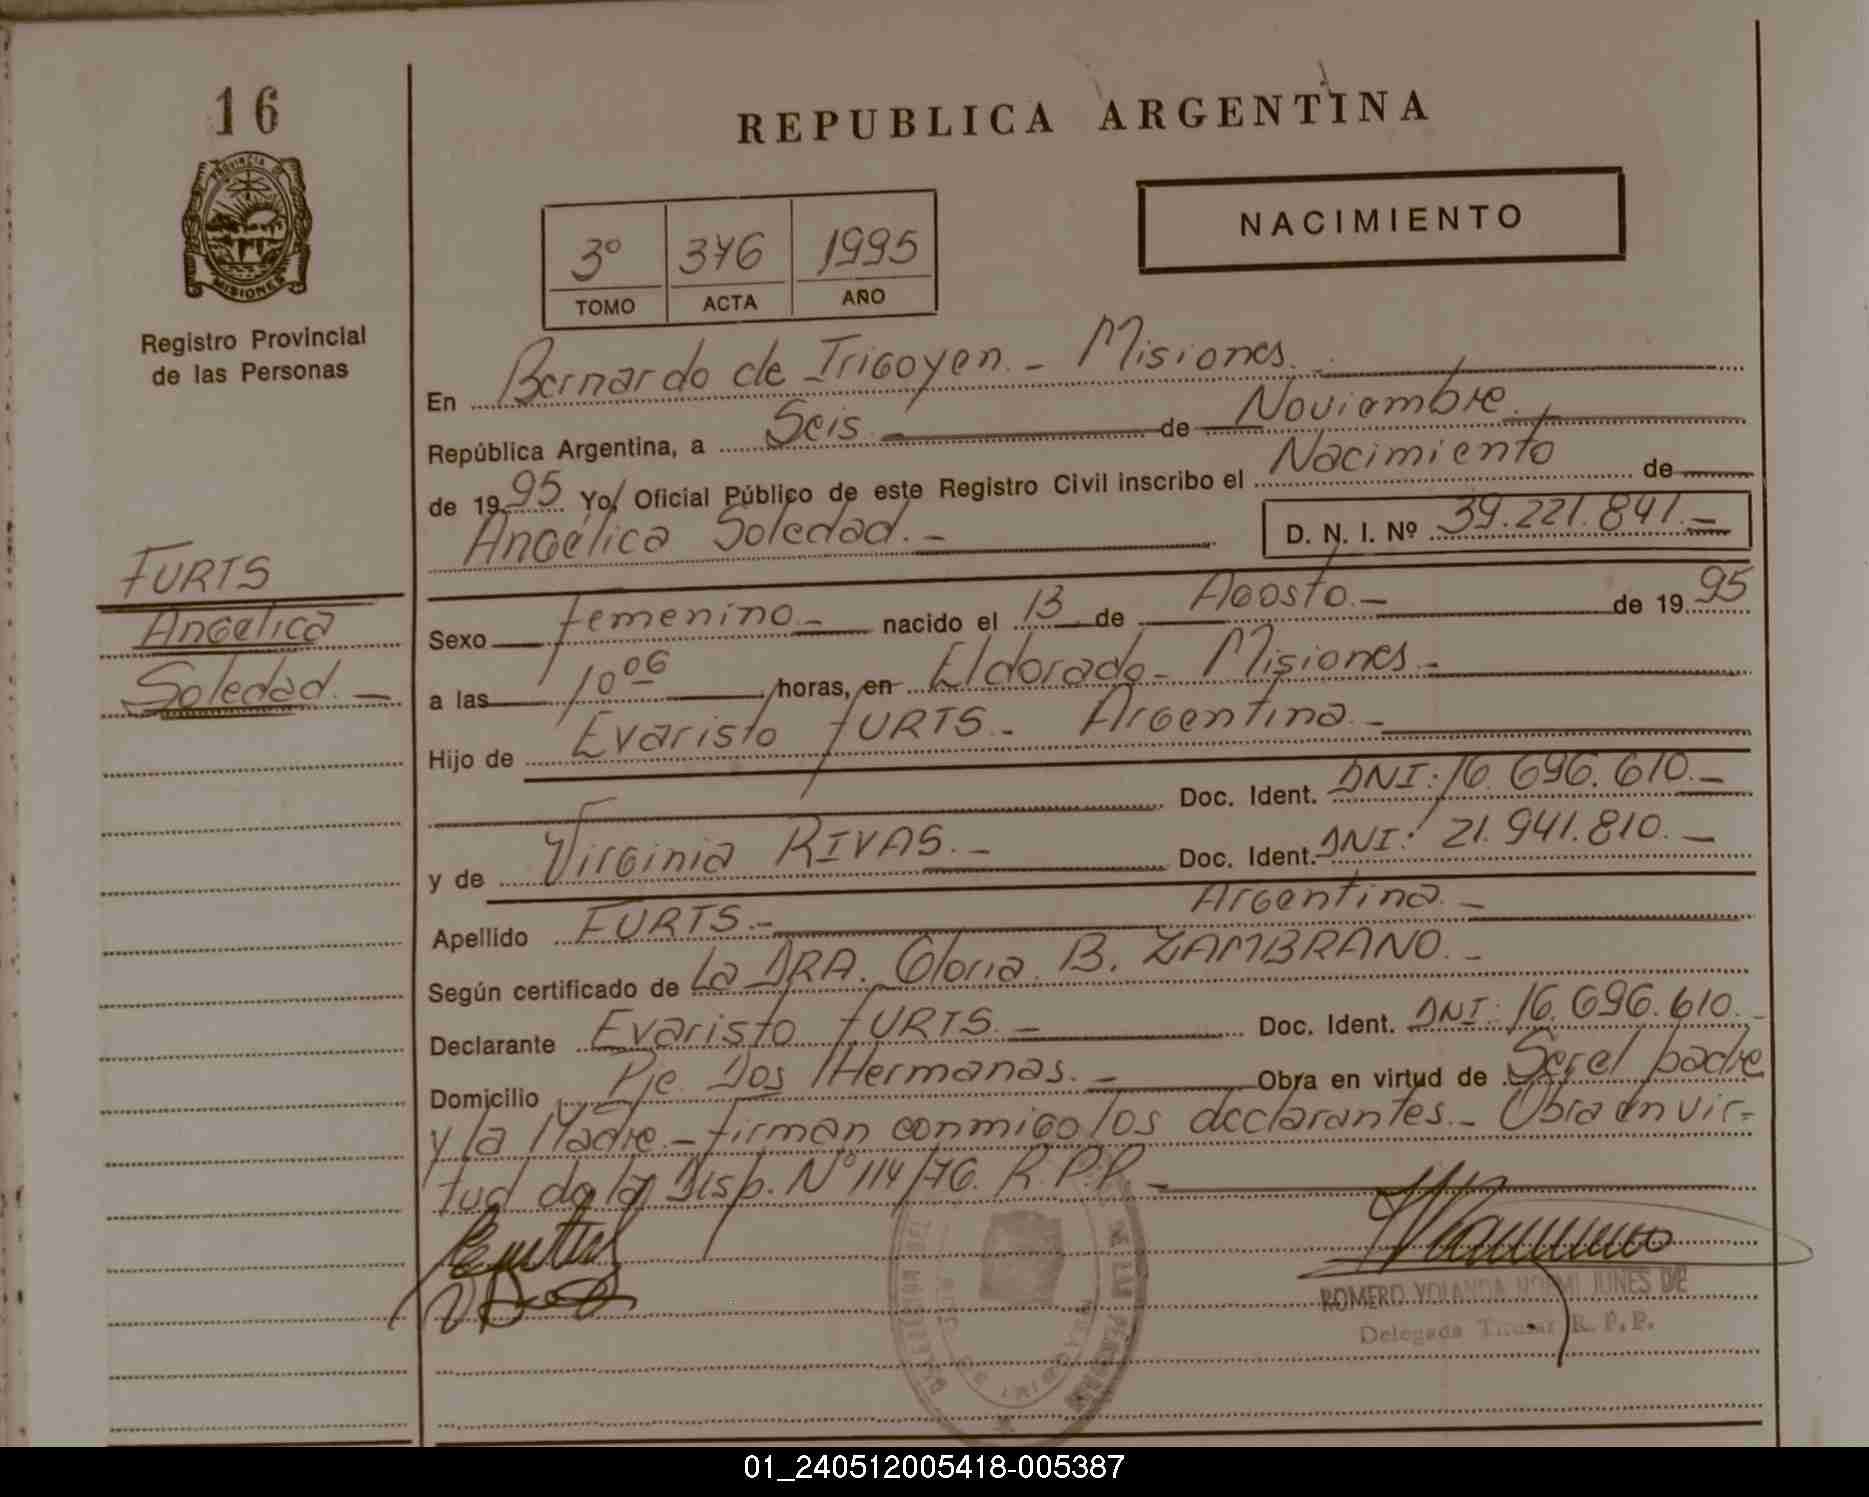 16
REPUBLICA ARGENTINA
PROVINCIA DE
MISIONES
Registro Provincial
de las Personas
NACIMIENTO
3º 376 1995
TOMO ACTA AÑO
En Bernardo de Irigoyen.- Misiones.
República Argentina, a Seis.- de Noviembre.
de 1995 Yo, Oficial Público de este Registro Civil inscribo el Nacimiento de
Angélica Soledad.- D. N. I. Nº 39.221.841.-
FURTS
Angelica
Soledad.-
Sexo femenino.- nacido el 13 de Agosto.- de 1995
a las 10 06 horas, en Eldorado- Misiones.-
Hijo de Evaristo FURTS.- Argentina.-
Doc. Ident. DNI: 16.696.610.-
y de Virginia RIVAS.- Doc. Ident. DNI: 21.941.810.-
Argentina.-
Apellido FURTS.-
Según certificado de La DRA. Gloria B. ZAMBRANO.-
Declarante Evaristo FURTS.- Doc. Ident. DNI: 16.696.610.-
Domicilio Pje Dos Hermanas.- Obra en virtud de Ser el padre
y la Madre.- firman conmigo los declarantes.- Obra en vir=
tud de la Disp. Nº 114/76. R.P.P.-
ROMERO YOLANDA NOEMI JUNES DE
Delegada Titular R. P. P.
DE LAS PERSONAS
01_240512005418-005387